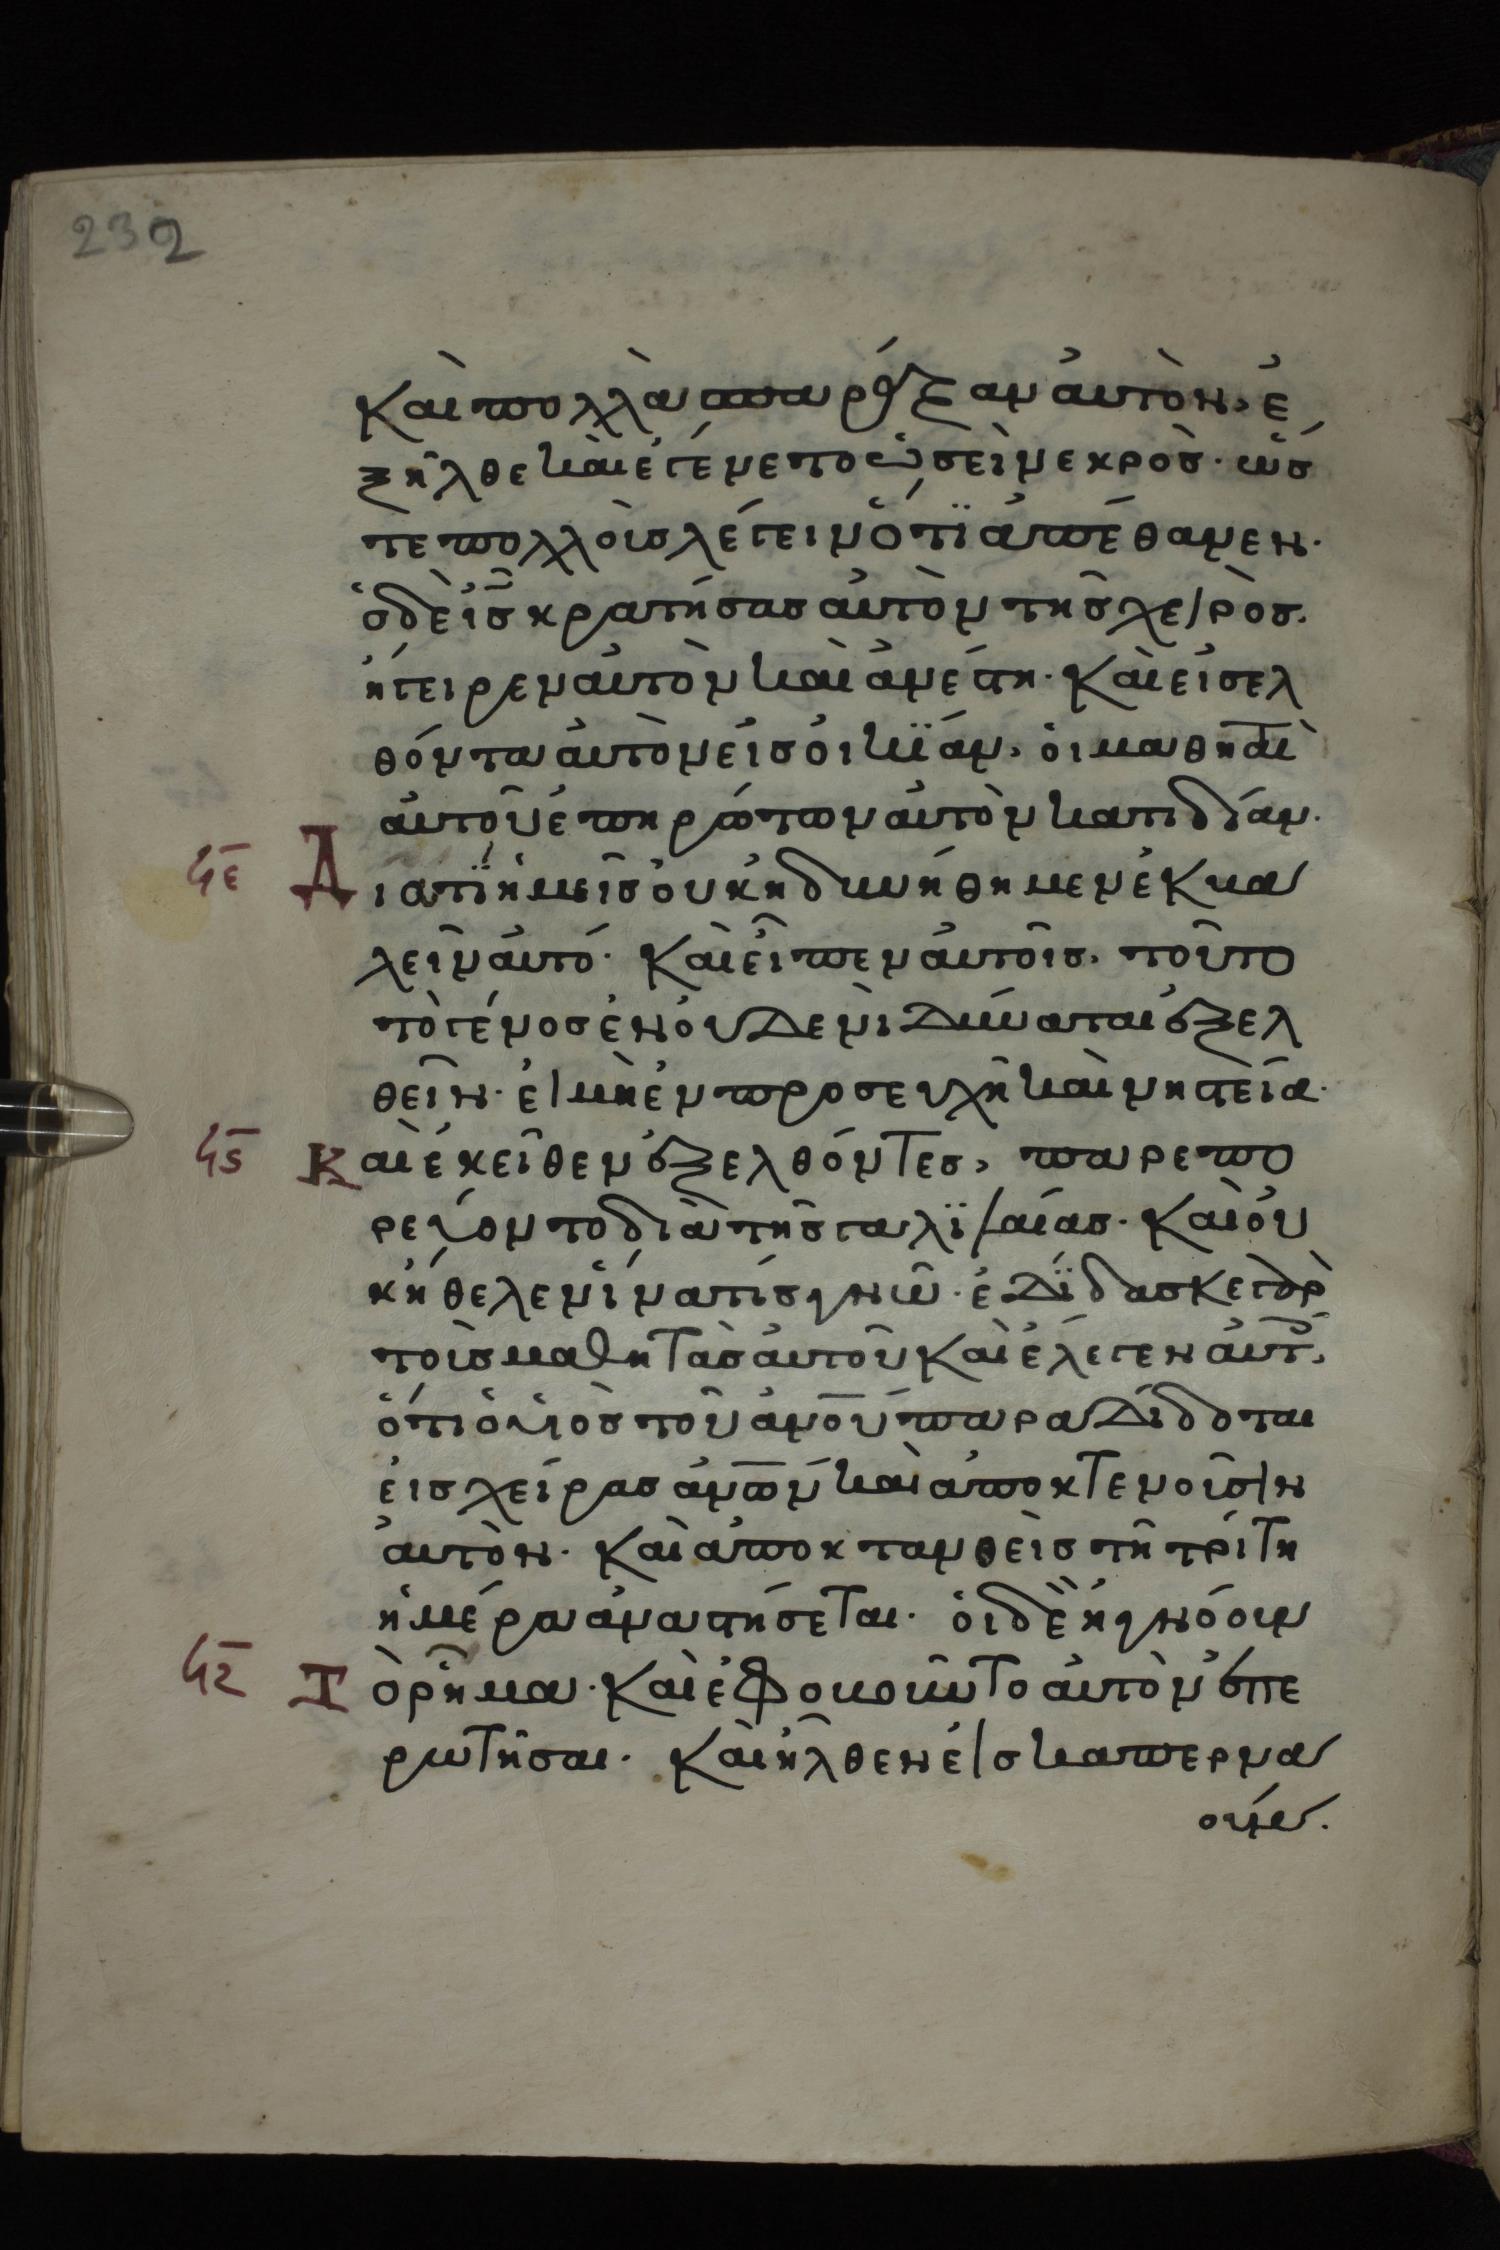 232
καὶ πολλὰ σπαράξαν αὐτὸν, ἐ
ξῆλθε καὶ ἐγένετο ὡσεὶ νεκρὸς· ὥσ
τε πολλοὺς λέγειν ὅτϊ ἀπέθανεν·
ὁ δὲ ἰς̅ κρατήσας αὐτὸν τῆς χειρὸς.
ἤγειρεν αὐτὸν καὶ ἀνέστη· καὶ εἰσελ
θόντα αὐτὸν εἰς οἰκΐαν, οἱ μαθηταὶ
αὐτοῦ ἐπηρώτων αὐτὸν κατιδίαν·
ϟε̅ Διατΐ ἡμεῖς οὐκ ἠδυνήθημεν ἐκβα
λεῖν αὐτό· καὶ εἶπεν αὐτοῖς. τοῦτο
τὸ γένος ἐν οὐδενὶ δύναται ἐξελ
θεῖν· εἰ μὴ ἐν προσευχῆ καὶ νηστεία·
ϟϛ̅ Καὶ ἐκεῖθεν ἐξελθόντες, παρεπο
ρεύοντο διὰ τῆς γαλϊλαίας· καὶ οὐ
κ ἤθελεν ἵνα τίς γνῶ· ἐδΐδασκε γὰρ
τοὺς μαθητὰς αὐτοῦ καὶ ἔλεγεν αὐτ̅,
ὅτι ὁ υἱὸς τοῦ ἀν̅ου παραδίδοται
εἰς χεῖρας ἀν̅ων καὶ ἀποκτενοῦσιν
αὐτὸν· καὶ ἀποκτανθεὶς τῆ τρίτη
ἡμέρα ἀναστήσεται· οἱ δὲ ἠγνόουν
ϟζ̅ Τὸ ῥῆμα· καὶ ἐφοβοῦντο αὐτὸν ἐπε
ρωτῆσαι· καὶ ἦλθεν εἰς καπερνα
ούμ.